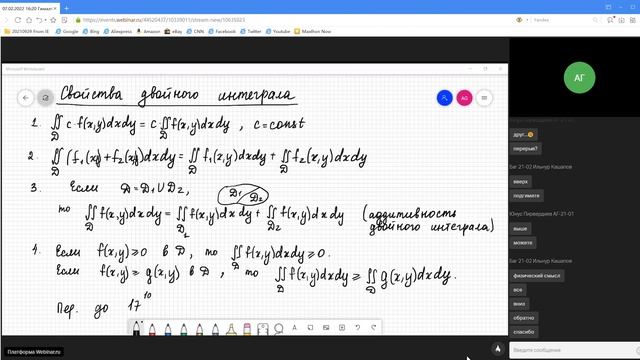 07.02.2022 16:20 Гимаш
https://events.webinar.ru/44520437/10339011/stream-new/10635023
Yandex
20210929 From IE
Bing
Aliexpress
Amazon
eBay
CNN
Facebook
Twitter
BBC
Maxthon Now
Microsoft Whiteboard
Свойства двойного интеграла
1. ∬_D c·f(x,y)dxdy = c·∬_D f(x,y)dxdy , c=const
2. ∬_D (f₁(x,y)+f₂(x,y))dxdy = ∬_D f₁(x,y)dxdy + ∬_D f₂(x,y)dxdy
3. Если D = D₁ ∪ D₂,
D₁ D₂
то ∬_D f(x,y)dxdy = ∬_D₁ f(x,y)dxdy + ∬_D₂ f(x,y)dxdy (аддитивность
двойного интеграла)
4. Если f(x,y) ≥ 0 в D, то ∬_D f(x,y)dxdy ≥ 0.
Если f(x,y) ≥ g(x,y) в D, то ∬_D f(x,y)dxdy ≥ ∬_D g(x,y)dxdy.
Пер. до 17¹⁰
Платформа Webinar.ru
AG
АГ
друг...
перерыв?
Баг 21-02 Ильнур Кашапов
вверх
подтмите
Юнус Пирвердиев АГ-21-01
выше
можете
Баг 21-02 Ильнур Кашапов
физический смысл
все
вниз
обратно
спасибо
Введите сообщение